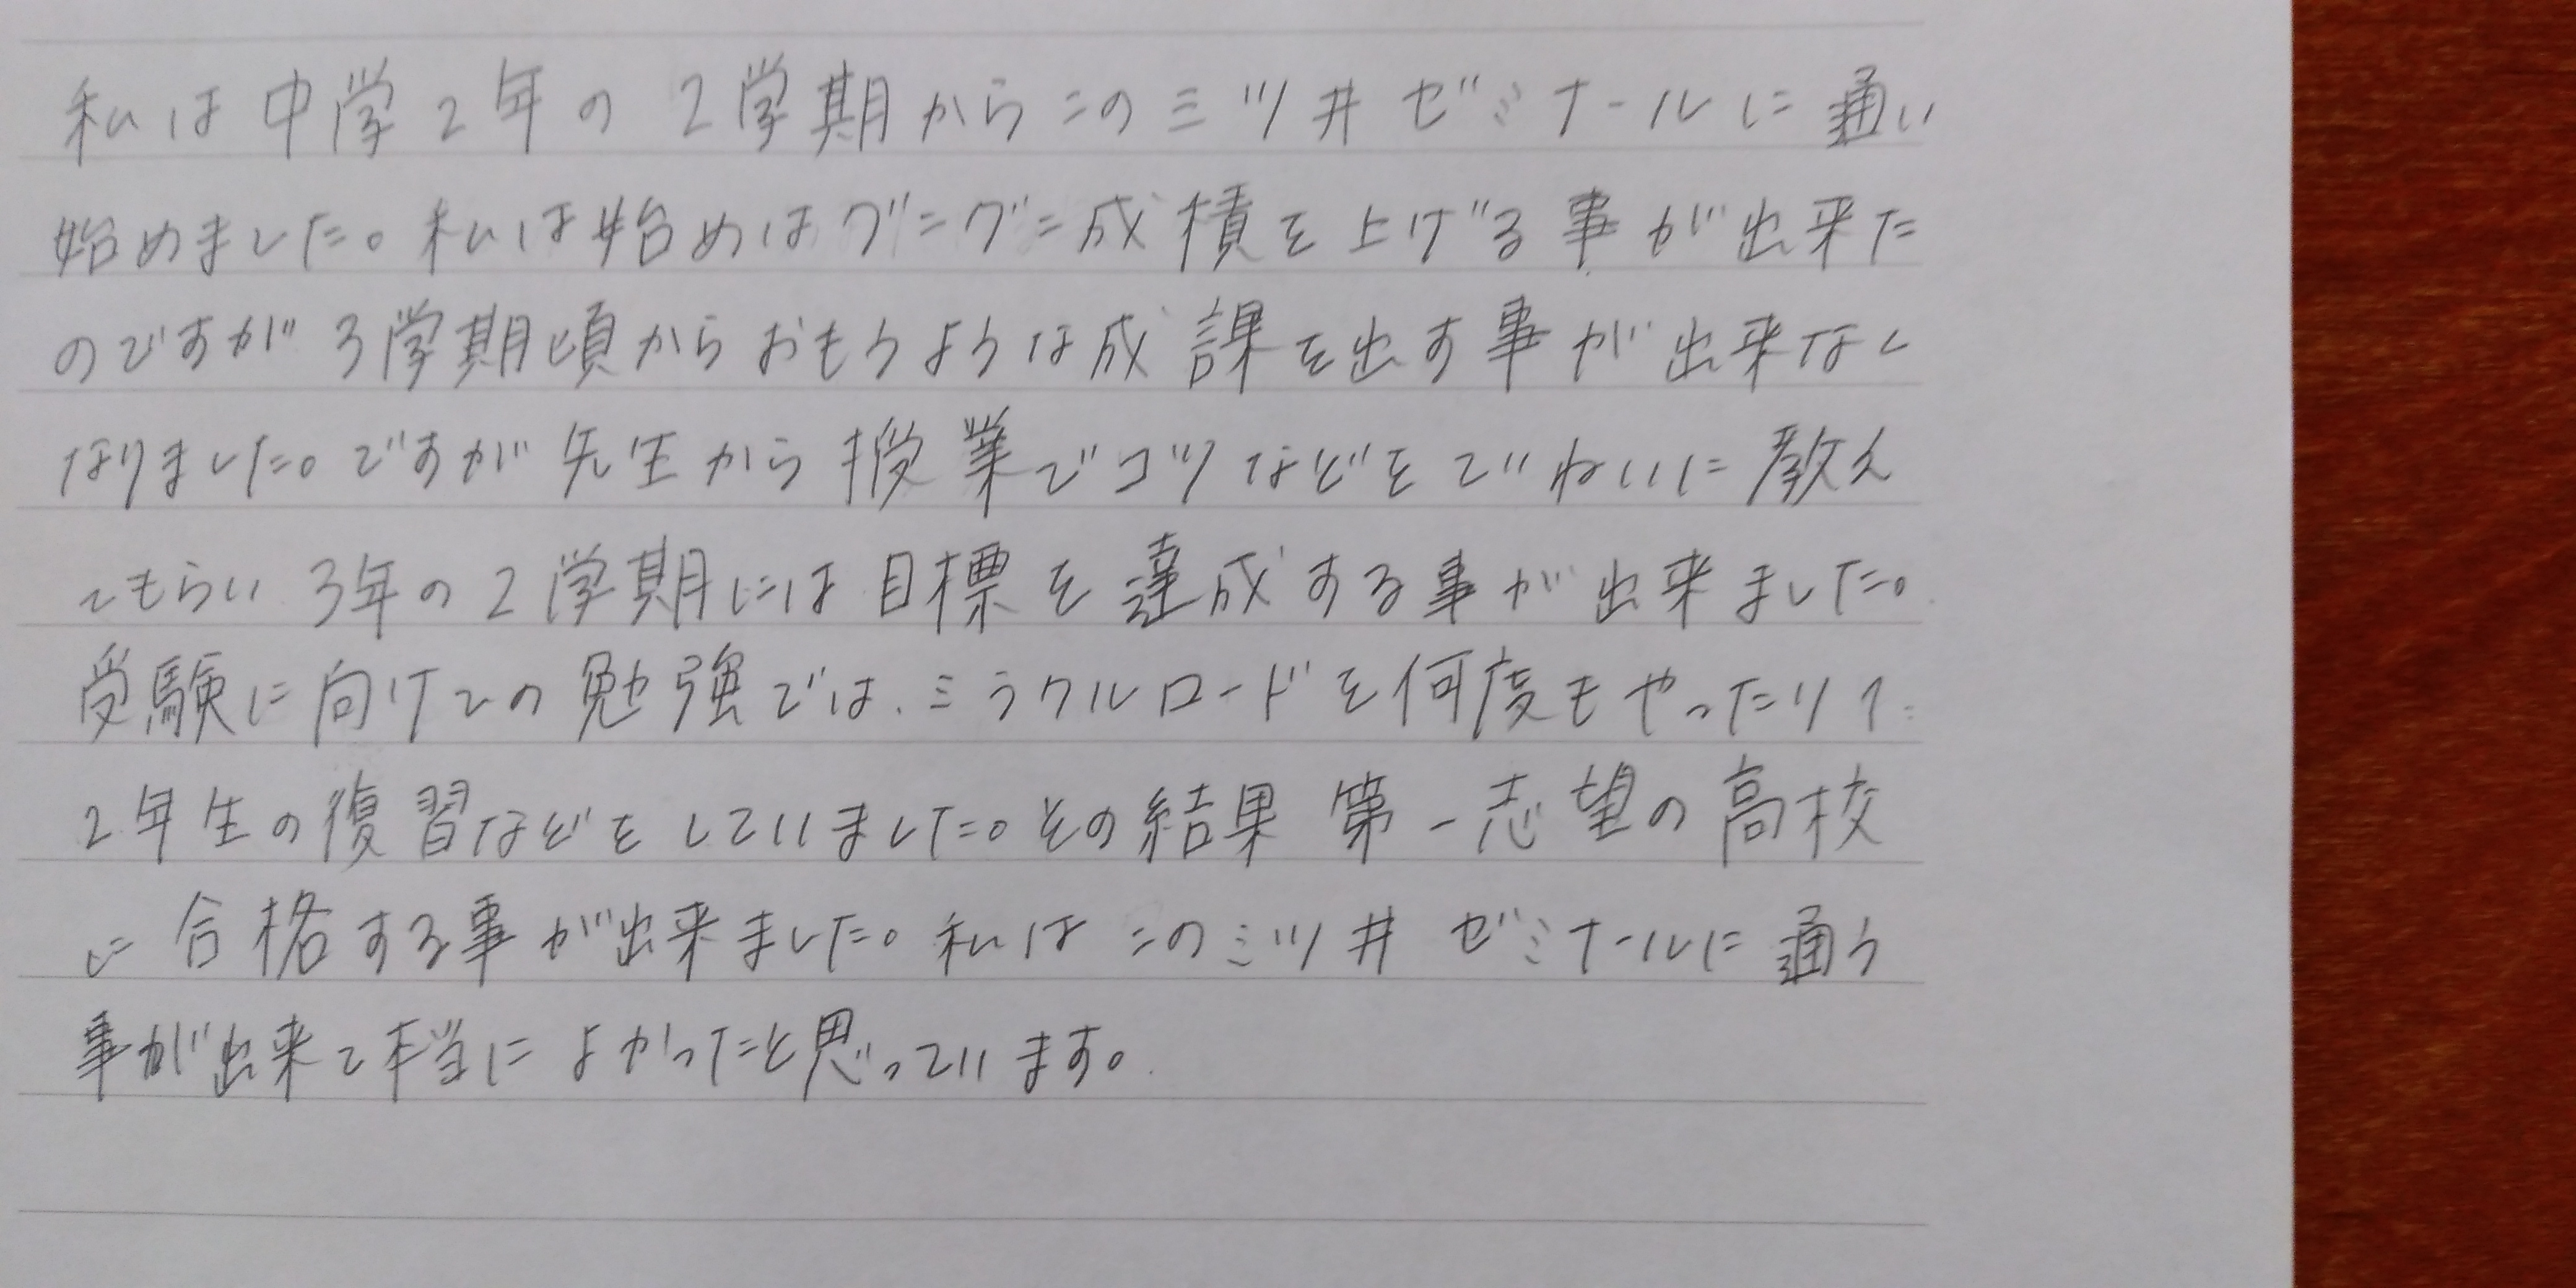 私は中学2年の2学期からこのミツ井ゼミナールに通い
始めました。私は始めはグングン成積を上げる事が出来た
のですが3学期頃からおもうような成課を出す事が出来なく
なりました。ですが先生から授業でコツなどをていねいに教え
てもらい3年の2学期には目標を達成する事が出来ました。
受験に向けての勉強では、ミラクルロードを何度もやったり1、
2年生の復習などをしていました。その結果第一志望の高校
に合格する事が出来ました。私はこのミツ井ゼミナールに通う
事が出来て本当によかったと思っています。